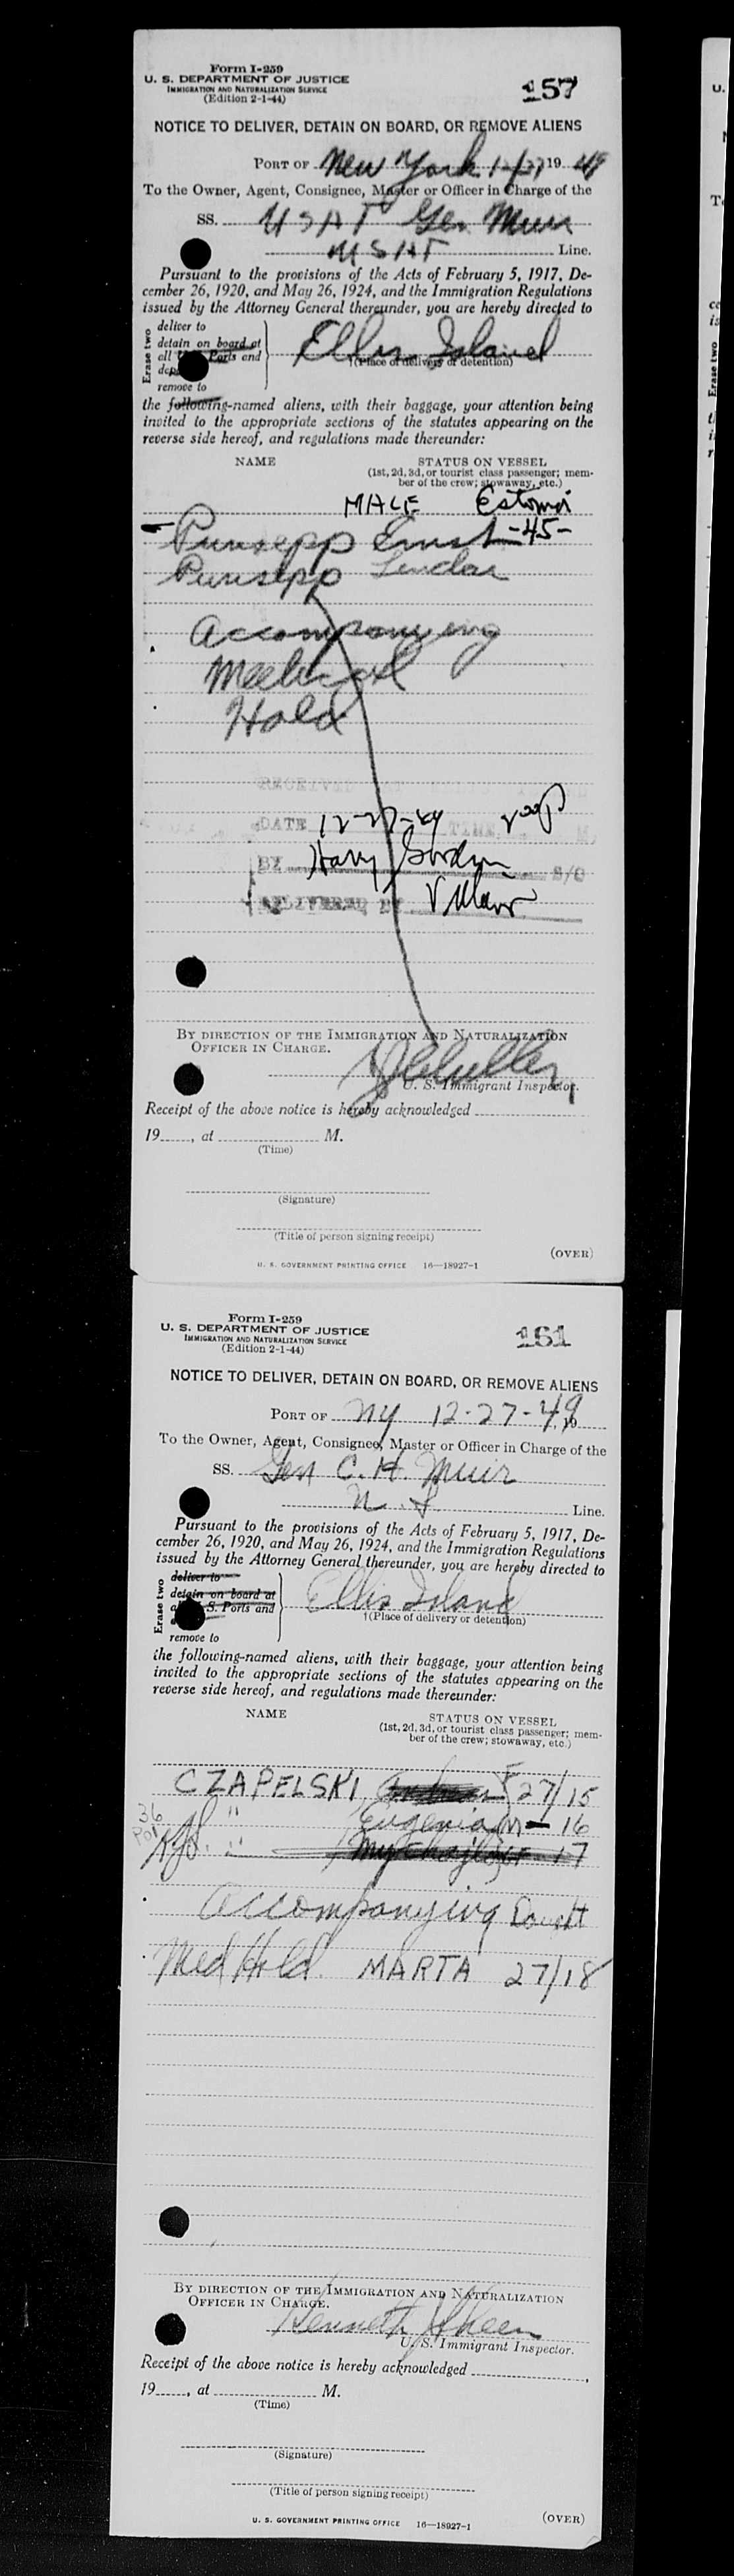 Form I-259
U. S. DEPARTMENT OF JUSTICE
IMMIGRATION AND NATURALIZATION SERVICE
(Edition 2-1-44)
157
NOTICE TO DELIVER, DETAIN ON BOARD, OR REMOVE ALIENS
PORT OF New York 19 49
To the Owner, Agent, Consignee, Master or Officer in Charge of the
SS. USAT Gen Muir
USAT Line.
Pursuant to the provisions of the Acts of February 5, 1917, De-
cember 26, 1920, and May 26, 1924, and the Immigration Regulations
issued by the Attorney General thereunder, you are hereby directed to
Erase two
deliver to
detain on board at
all Ports and
remove to
Ellis Island
†(Place of delivery or detention)
the following-named aliens, with their baggage, your attention being
invited to the appropriate sections of the statutes appearing on the
reverse side hereof, and regulations made thereunder:
NAME STATUS ON VESSEL
(1st, 2d, 3d, or tourist class passenger; mem-
ber of the crew; stowaway, etc.)
MALE
Purisepp Ernst -45-
Purisepp
Accompanying
Medical
Hold
RECEIVED
DATE 12-27-49 TIME M.
BY Harry S/O
DELIVERED BY
BY DIRECTION OF THE IMMIGRATION AND NATURALIZATION
OFFICER IN CHARGE.
U. S. Immigrant Inspector.
Receipt of the above notice is hereby acknowledged
19 , at M.
(Time)
(Signature)
(Title of person signing receipt)
(OVER)
U. S. GOVERNMENT PRINTING OFFICE 16—18927-1
Form I-259
U. S. DEPARTMENT OF JUSTICE
IMMIGRATION AND NATURALIZATION SERVICE
(Edition 2-1-44)
161
NOTICE TO DELIVER, DETAIN ON BOARD, OR REMOVE ALIENS
PORT OF NY 12-27-49 19
To the Owner, Agent, Consignee, Master or Officer in Charge of the
SS. Gen C. H. Muir
Line.
Pursuant to the provisions of the Acts of February 5, 1917, De-
cember 26, 1920, and May 26, 1924, and the Immigration Regulations
issued by the Attorney General thereunder, you are hereby directed to
Erase two
deliver to
detain on board at
S. Ports and
remove to
Ellis Island
†(Place of delivery or detention)
the following-named aliens, with their baggage, your attention being
invited to the appropriate sections of the statutes appearing on the
reverse side hereof, and regulations made thereunder:
NAME STATUS ON VESSEL
(1st, 2d, 3d, or tourist class passenger; mem-
ber of the crew; stowaway, etc.)
CZAPELSKI F 27/15
36 " Eugenia M — 16
Pol " 17
Accompanying
Med Hold. MARTA 27/18
BY DIRECTION OF THE IMMIGRATION AND NATURALIZATION
OFFICER IN CHARGE.
Kenneth
U. S. Immigrant Inspector.
Receipt of the above notice is hereby acknowledged
19 , at M.
(Time)
(Signature)
(Title of person signing receipt)
U. S. GOVERNMENT PRINTING OFFICE 16—18927-1 (OVER)